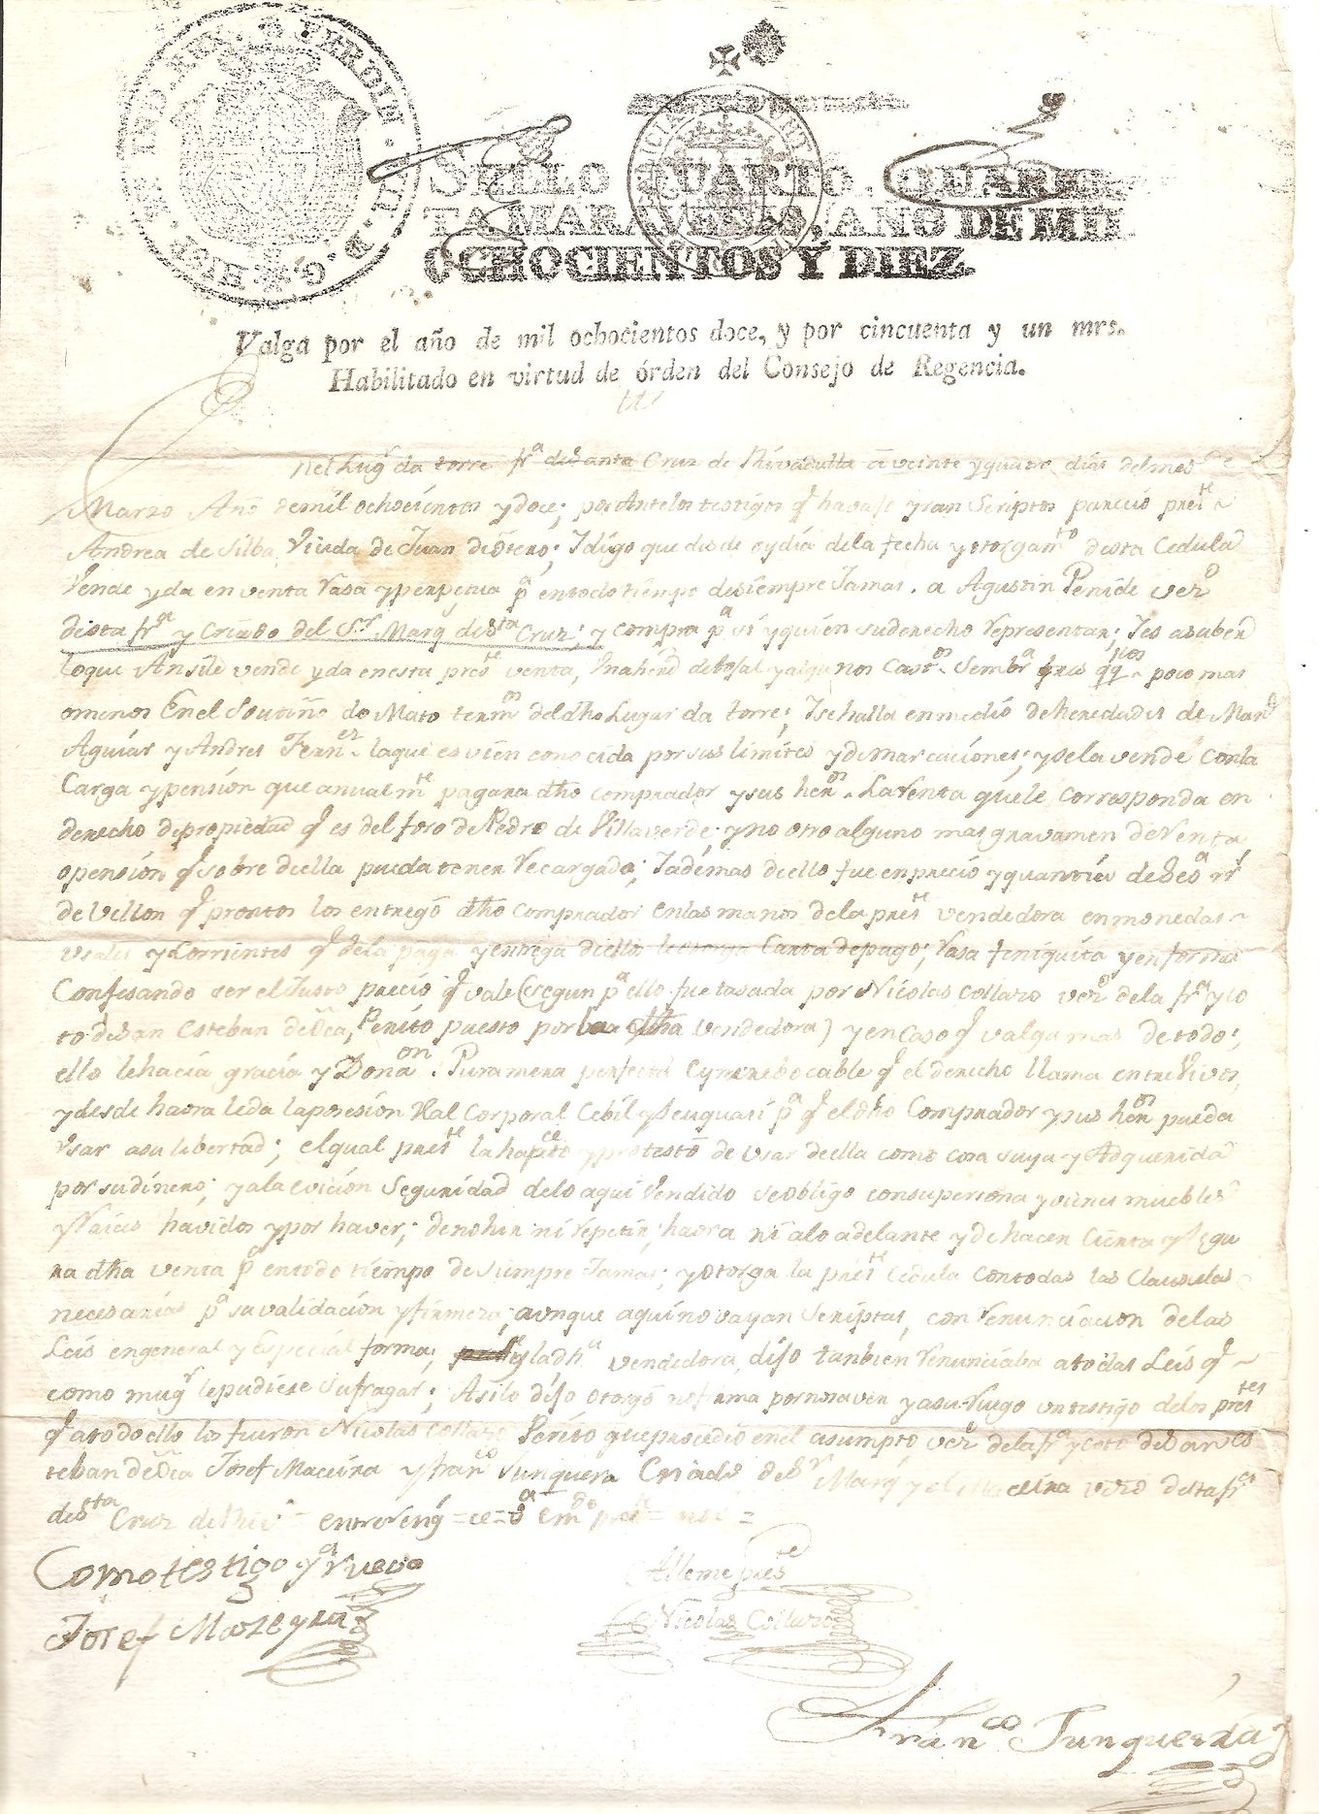 SELLO QUARTO, QUAREN-
TA MARAVEDIS, AÑO DE MIL
OCHOCIENTOS Y DIEZ.
Valga por el año de mil ochocientos doce, y por cincuenta y un mrs.
Habilitado en virtud de órden del Consejo de Regencia.
nel Lugr da torre frª de Santa Cruz de Rivadulla a veinte y quatro dias del mes de
Marzo Año demil ochocientos y doce; por Antelos testigos q havajo yran Scriptos parecio preste
Andrea de Silba, Viuda de Juan de Otero; I digo que desde oy dia dela fecha y otorgamto desta Cedula
Vende yda en venta Rasa y perpetua pª entodo tiempo desiempre Jamas. a Agustin Penide vezº
desta frª y Criado del Sr Marq desta Cruz; y compra pª si y quien suderecho representar; I es asaber
loque Ansile vende yda enesta preste venta, y algunos Casts Sembª tres poco mas
omenos Enel Soutiño do Mato termos del dho Lugar da torre; I sehalla en medio deheredades de Manl
Aguiar y Andres Fernez laque es vien conocida por sus limites y demarcaciones; y sela vende conla
Carga y pension que anualmte pagara dho comprador y sus heros La Renta quele corresponda en
derecho depropiedad q es del foro de Pedro de Villaverde; y no otro alguno mas gravamen de Renta
opension q sobre diella pueda tener Recargada; I ademas diello fue en precio y quantia de
de Vellon q prontos los entregó dho comprador enlas manos dela preste vendedora en monedas
usales y Corrientes q dela paga y entrega diello le otorga Carta depago; Rasa feniquita y en forma
Confesando ser el Justo precio q vale (segun pª ello fue tasada por Nicolas Collazo vezº dela frª y co
to de San Esteban de Perito puesto por la dha vendedora) y en Caso q valga mas de todo
ello lehacia gracia y Donaon Pura mera perfecta Eyrrebocable q el derecho llama entre Vivos,
y desde haora leda la posesion Ral Corporal Cebil y seuquasi pª q eldho Comprador y sus heros pueda
Usar asu libertad; elqual preste la hacepto y protestó de Usar deella como cosa suya y Adquerida
por sudinero; y ala evicion Seguridad delo aqui Vendido se obligo consupersona y vienes muebles
y Raices havidos y por haver; denohir ni Repetir, haora ni alo adelante y de hacer Cierta y Segu
ra dha venta pª entodo tiempo de siempre Jamas; y otorga la preste Cedula contodas las Clausulas
necesarias pª su validacion y firmeza; aunque aqui no vayan Scriptas, con renunciacion delas
Leis engeneral y Especial forma; y la dhª vendedora, dijo tanbien renunciaba atodas Leis q
como mugr lepudiese Sufragar; Asilo dijo otorgó nofirma pornosaver y asu Ruego un testigo delos prestes
q atodoello los fueron Nicolas Collazo Perito queprocedio en el asumpto vezº dela frª y coto de San Es
teban de Josef Maceira y franco Junquera Criado de Sr Marq y el Maceira vezº desta frª
desta Cruz de entre Reng
Como testigo yª Ruego
Josef Mazeyra
Alleme preste
Nicolas Collazo
Franco Junqueira